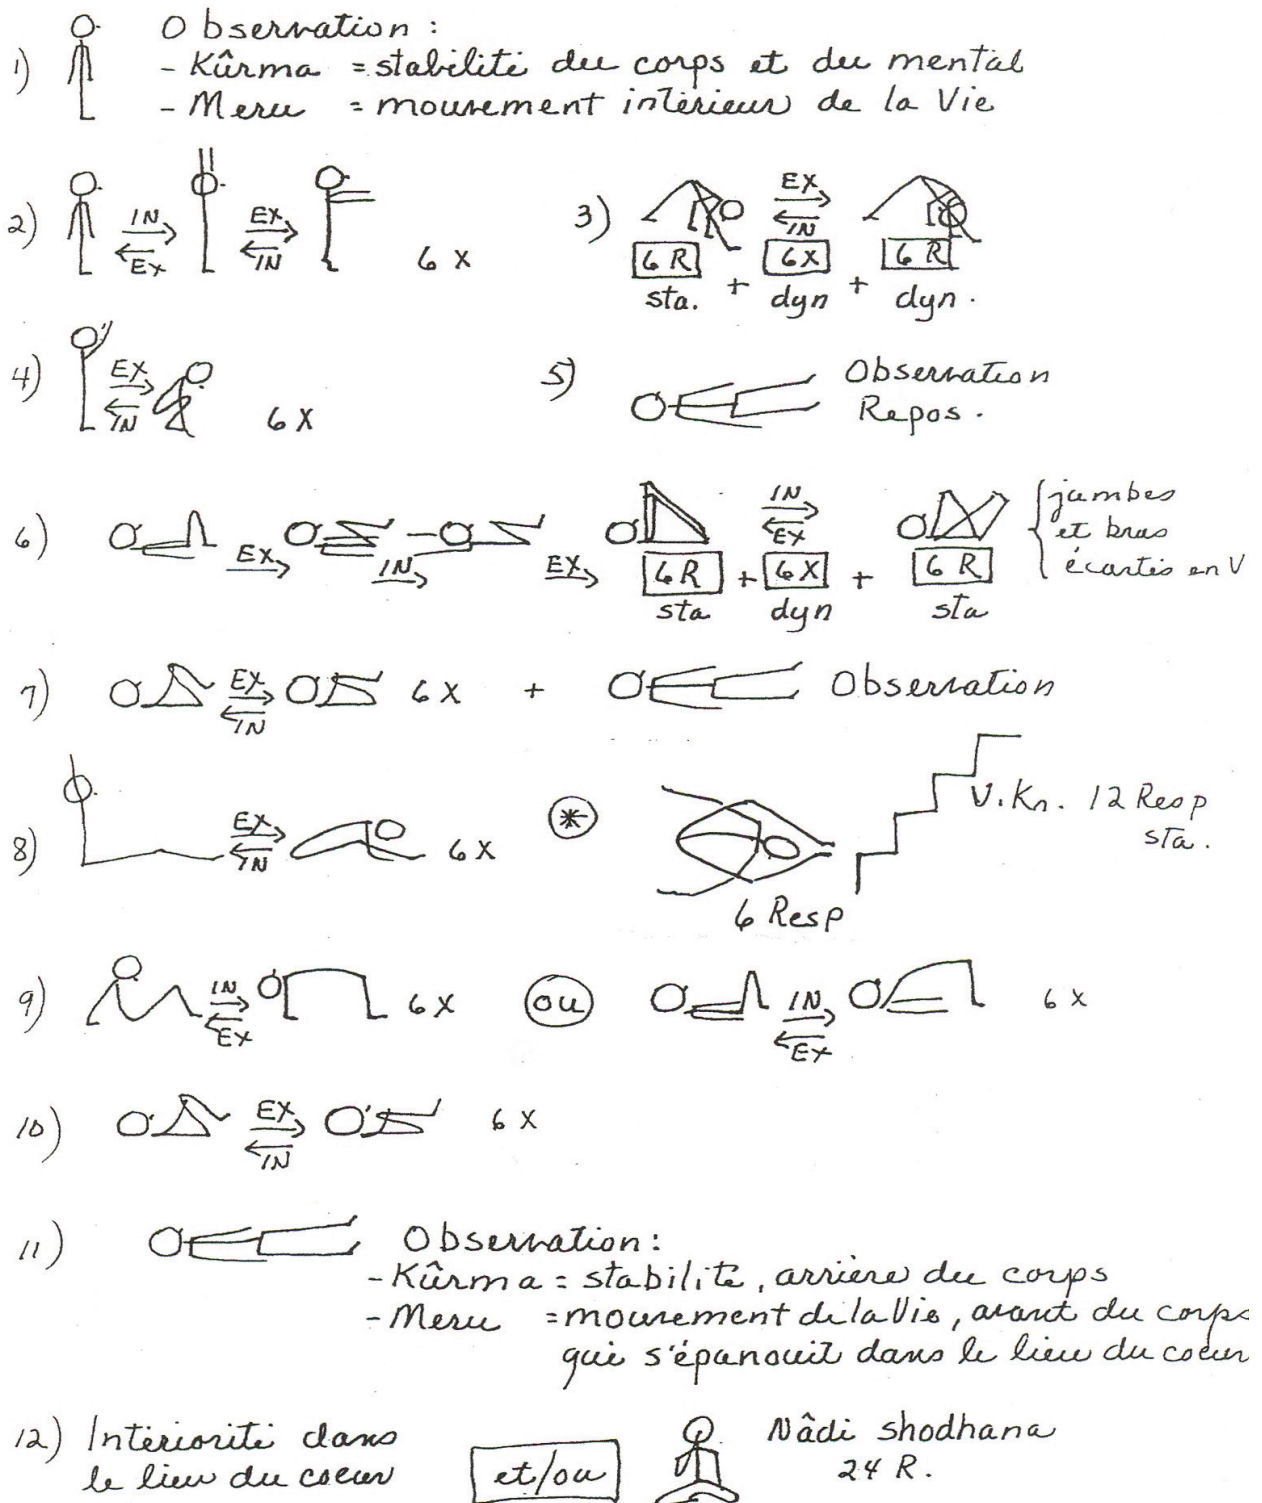 1) Observation :
- Kûrma = stabilité du corps et du mental
- Meru = mouvement intérieur de la Vie
2) IN EX EX IN 6 X
3) EX IN
6 R + 6X + 6 R
sta. dyn dyn.
4) EX IN 6 X
5) Observation
Repos.
6) EX IN EX IN EX
6 R + 6 X + 6 R
sta dyn sta
jambes
et bras
écartés en V
7) EX IN 6 X + Observation
8) EX IN 6 X * V.Kr. 12 Resp
sta.
6 Resp
9) IN EX 6 X ou IN EX 6 X
10) EX IN 6 X
11) Observation :
- Kûrma = stabilité, arrière du corps
- Meru = mouvement de la Vie, avant du corps
qui s'épanouit dans le lieu du coeur
12) Intériorité dans
le lieu du coeur
et/ou
Nâdi shodhana
24 R.